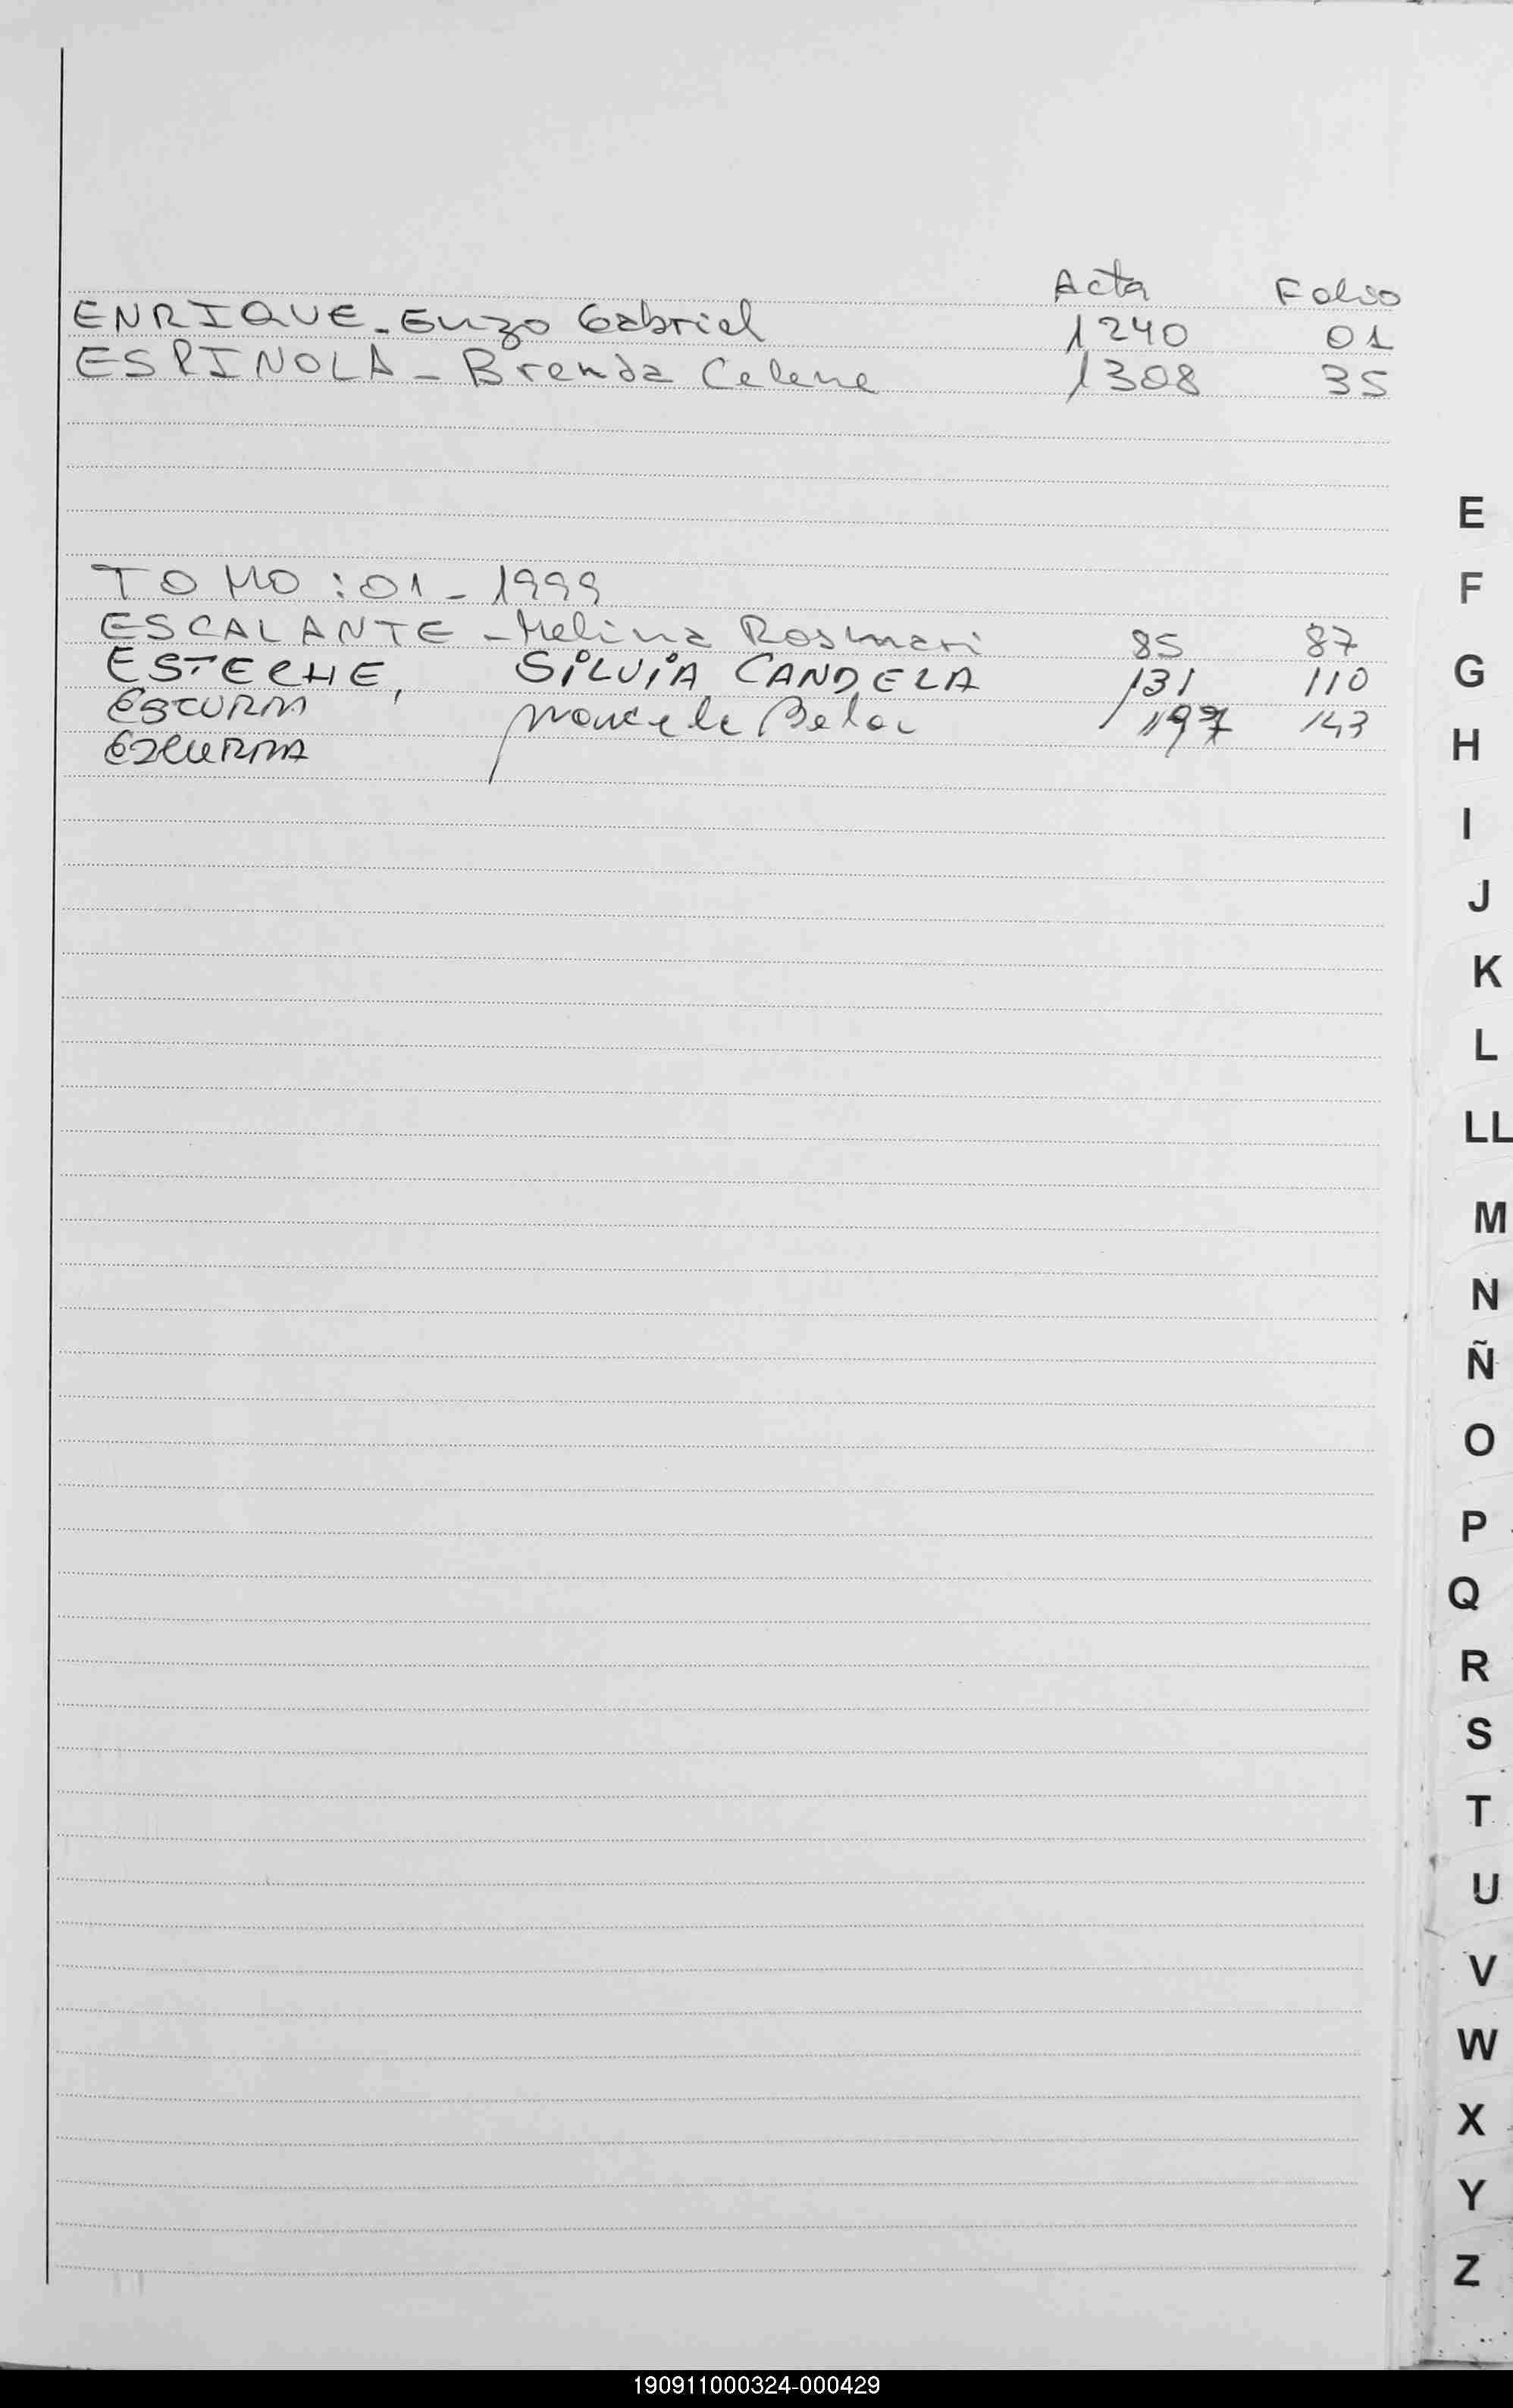 Acta Folio
ENRIQUE - Enzo Gabriel 1240 01
ESPINOLA - Brenda Celene 1308 35
TOMO : 01 - 1999
ESCALANTE - Melina Rosmari 85 87
ESTECHE, SILVIA CANDELA 131 110
Belen 197 143
EZCURRA
E
F
G
H
I
J
K
L
LL
M
N
Ñ
O
P
Q
R
S
T
U
V
W
X
Y
Z
190911000324-000429